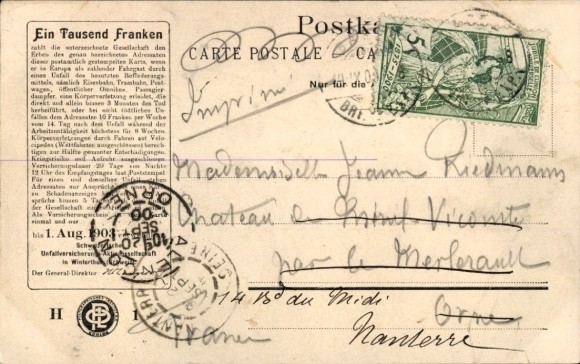 Ein Tausend Franken
zahlt die unterzeichnete Gesellschaft den
Erben des genau bezeichneten Adressaten
dieser postamtlich gestempelten Karte, wenn
er in Europa als zahlender Fahrgast durch
einen Unfall des benutzten Beförderungs-
mittels, nämlich Eisenbahn, Trambahn, Post-
wagen, öffentlicher Omnibus, Passagier-
dampfer, eine Körperverletzung erleidet, die
direkt und allein binnen 3 Monaten den Tod
herbeiführt, oder bei nicht tötlichen Unfäl-
len dem Adressaten 10 Franken per Woche
vom 14. Tag nach dem Unfall während der
Arbeitsunfähigkeit höchstens für 8 Wochen.
Körperverletzungen durch Fahren auf Velo-
cipedes (Wettfahrten ausgeschlossen) berech-
tigen zur Hälfte genannter Entschädigungen.
Kriegsrisiko und Aufruhr ausgeschlossen.
Versicherungsdauer 20 Tage von Nachts
12 Uhr des Empfangstages laut Poststempel
Für einen und denselben Unfall stehen
Adressaten nur Ansprüche
bis 1. Aug. 1903
Unfallversicherungs-Aktiengesellschaft
in Winterthur
Der General-Direktor
H
Postka
CARTE POSTALE CA
Nur für die
5
Imprimé
Mademoiselle Jeanne Riedmann
Chateau de Ménil-Vicomte
par le Merlerault
Orne
14 Bd du Midi
Nanterre
France
ORNE
20
SEPT
SEINE
NANTERRE